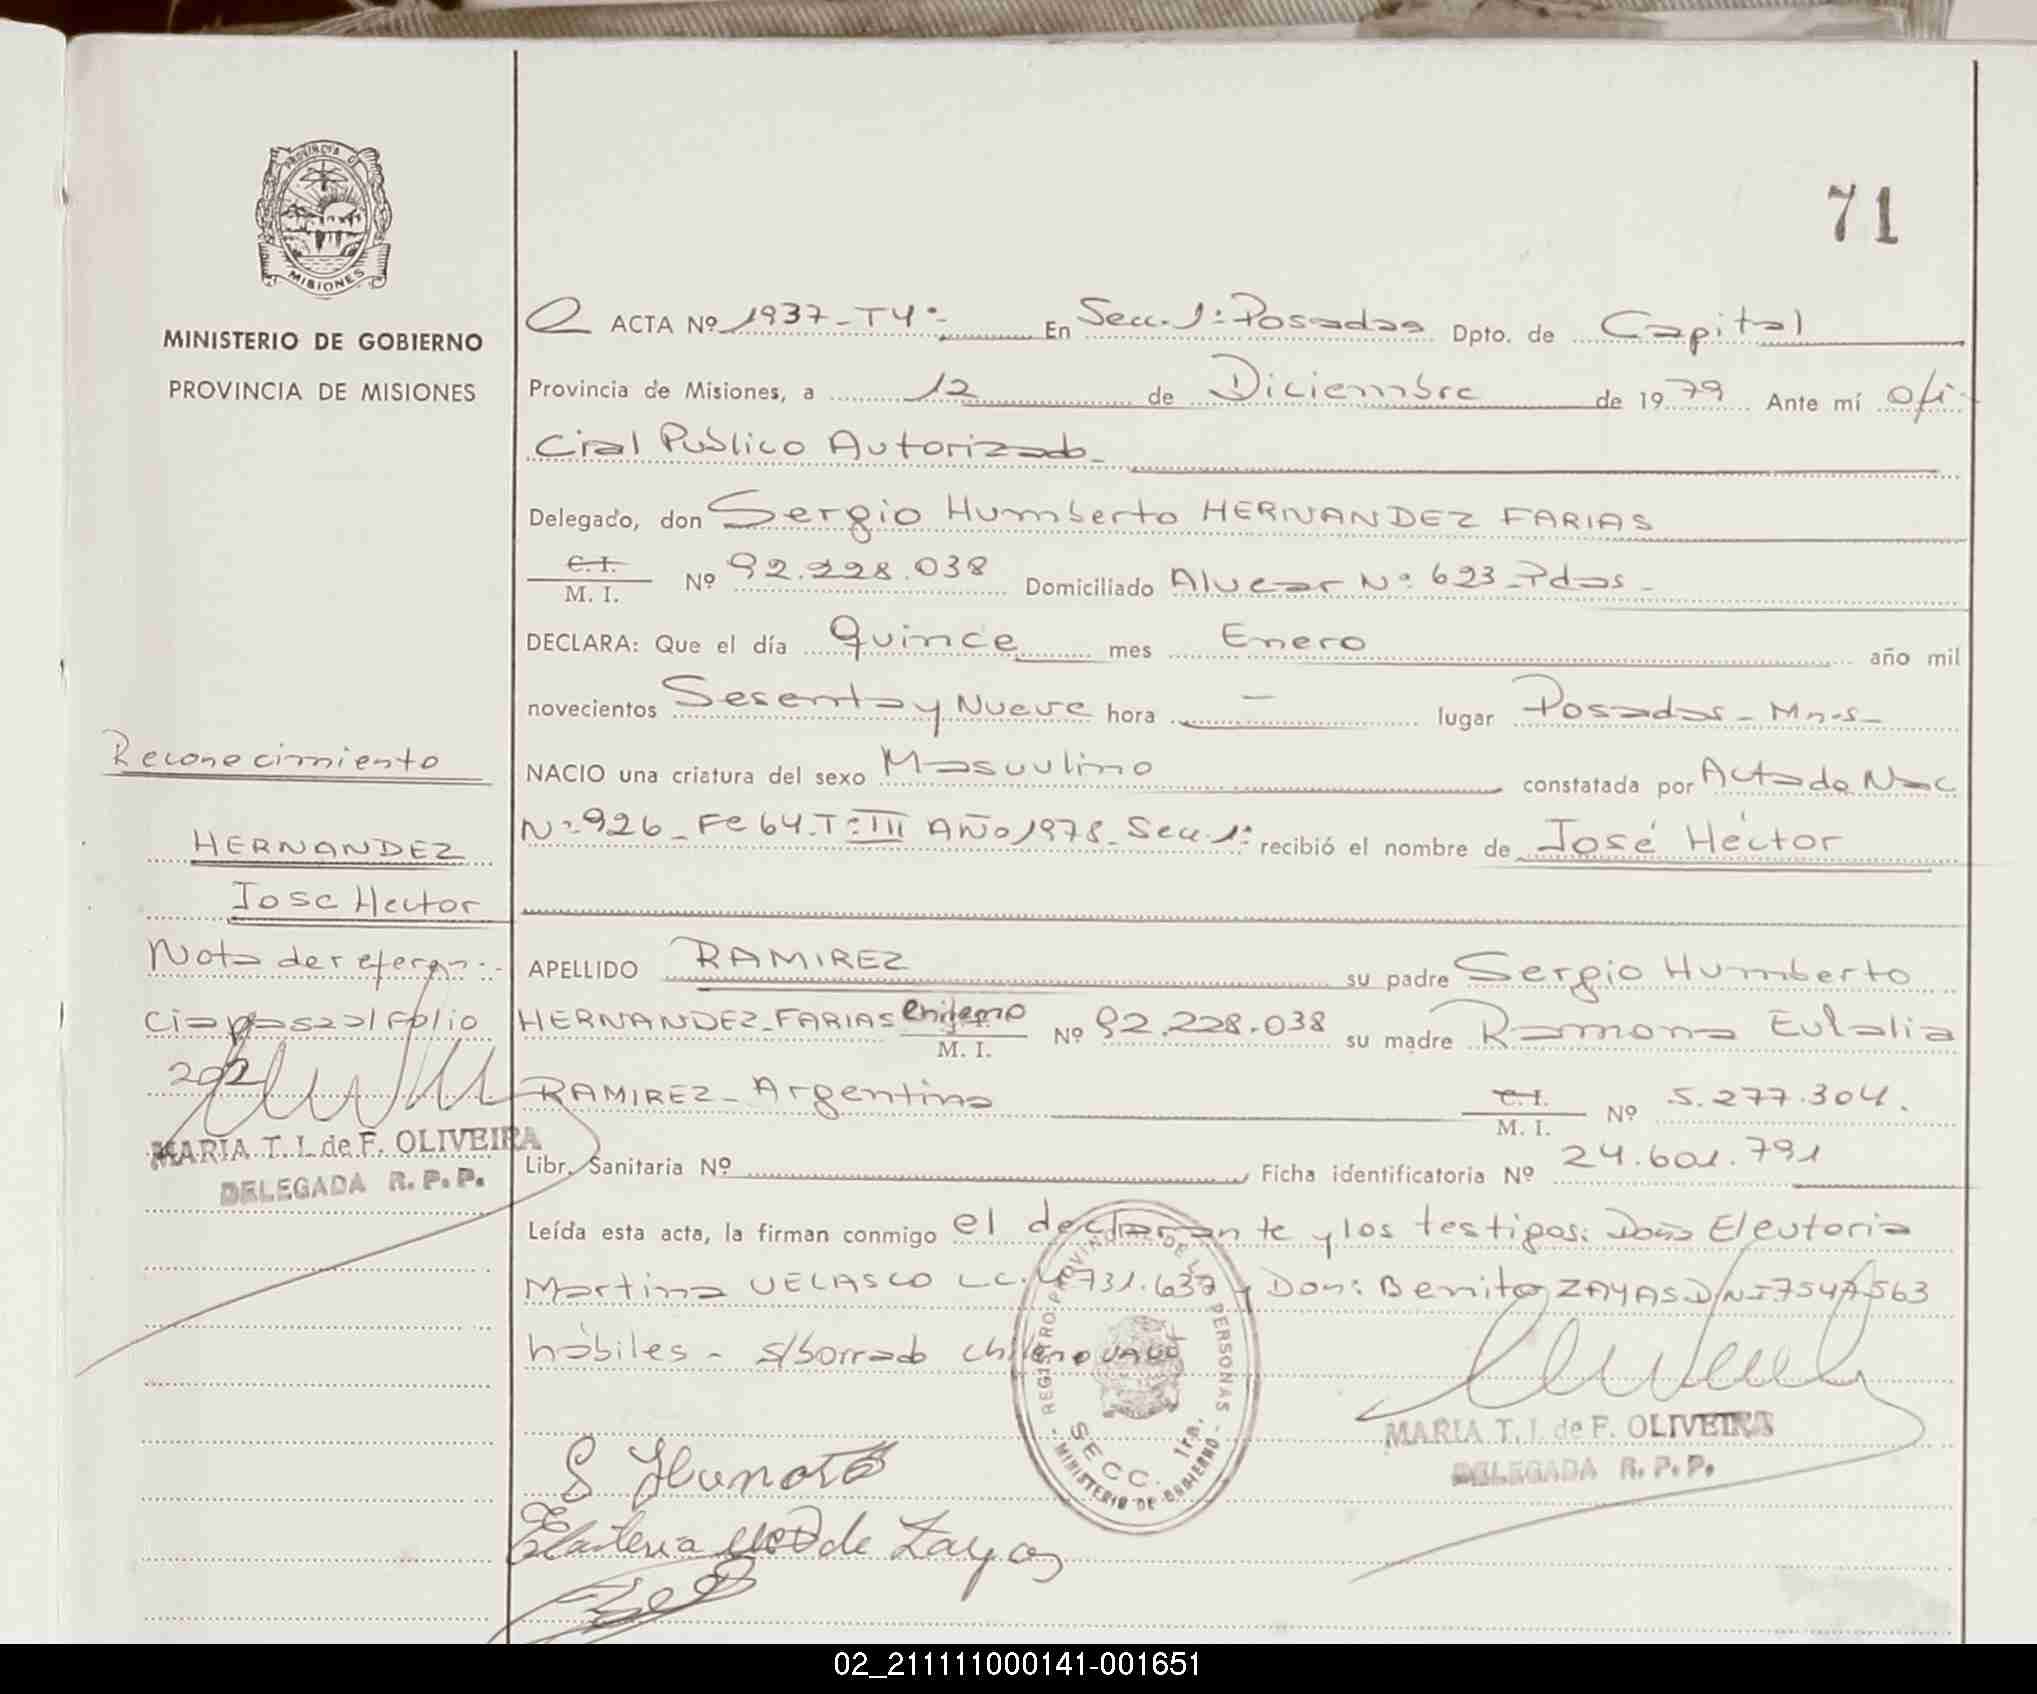 71
PROVINCIA D
MISIONES
MINISTERIO DE GOBIERNO
PROVINCIA DE MISIONES
ACTA Nº 1937-T4º- En Secc. 1ª Posadas Dpto. de Capital
Provincia de Misiones, a 12 de Diciembre de 1979 Ante mí Ofi-
cial Publico Autorizado-
Delegado, don Sergio Humberto HERNANDEZ FARIAS
C.I.
M. I. Nº 92.228.038 Domiciliado Alvear Nº 623-Pdas-
DECLARA: Que el día Quince mes Enero año mil
novecientos Sesenta y Nueve hora - lugar Posadas-Mn-s-
NACIO una criatura del sexo Masculino constatada por Acta de Nac
Nº 926-Fº 64-Tº III Año 1978-Secc. 1ª recibió el nombre de José Héctor
APELLIDO RAMIREZ su padre Sergio Humberto
HERNANDEZ-FARIAS chileno M. I. Nº 92.228.038 su madre Ramona Eulalia
RAMIREZ-Argentina C.I. M. I. Nº 5.277.304.
Libr. Sanitaria Nº Ficha identificatoria Nº 24.601.791
Leída esta acta, la firman conmigo el declarante y los testigos: Doña Eleutoria
Martina VELASCO L.C. 4731.637 y Don: Benito ZAYAS DNI 7547563
hábiles- s/borrado chileno vale
Reconocimiento
HERNANDEZ
Jose Hector
Nota de referen-
cia pasa al folio
202
MARIA T. I. de F. OLIVEIRA
DELEGADA R. P. P.
REGISTRO PROVINCIAL DE LAS PERSONAS
SECC. 1ra.
MINISTERIO DE GOBIERNO
MARIA T. I. de F. OLIVEIRA
DELEGADA R. P. P.
de Zayas
02_211111000141-001651